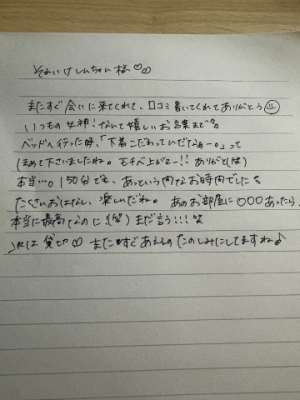 それいけしんちゃん様♡♡
またすぐ会いに来てくれて、口コミ書いてくれてありがとう
いつもの女神！なんて嬉しいお言葉まで
ベッドへ行った時、「下着こだわっていいだなぁー。」って
ほめて下さいましたね。モチベ上がるー!! ありがと(笑)
お喋り。150分でも、あっという間なお時間でした
たくさんおはなし、楽しいだね。あのお部屋に○○○あったら、
本当に最高なのに(笑) まだ言う!!! 笑
次は貸切♡ またすぐあえるのたのしみにしてますね♪